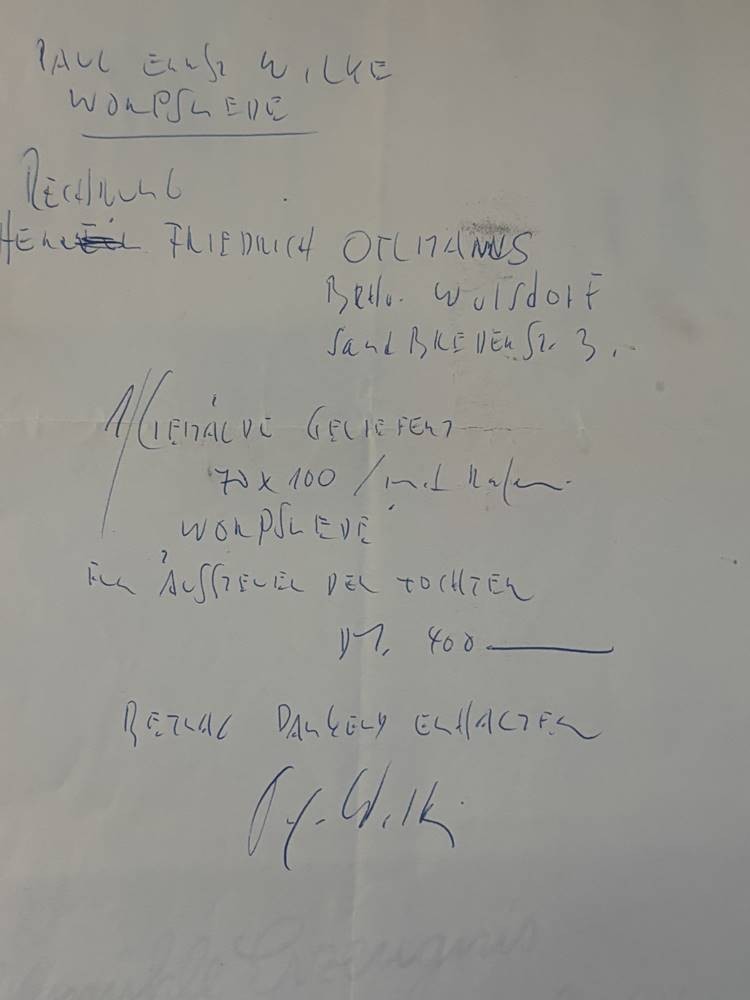 PAUL ERNST WILKE
WORPSWEDE
RECHNUNG
HERRN FRIEDRICH OTLMANNS
BRHV. WULSDORF
SANDBREDENSTR. 3.
1/ GEMÄLDE GELIEFERT
70 x 100 / mit Rahmen
WORPSWEDE
FÜR AUSSTEUER DER TOCHTER
DM. 400
BETRAG DANKEND ERHALTEN
P.E. Wilke